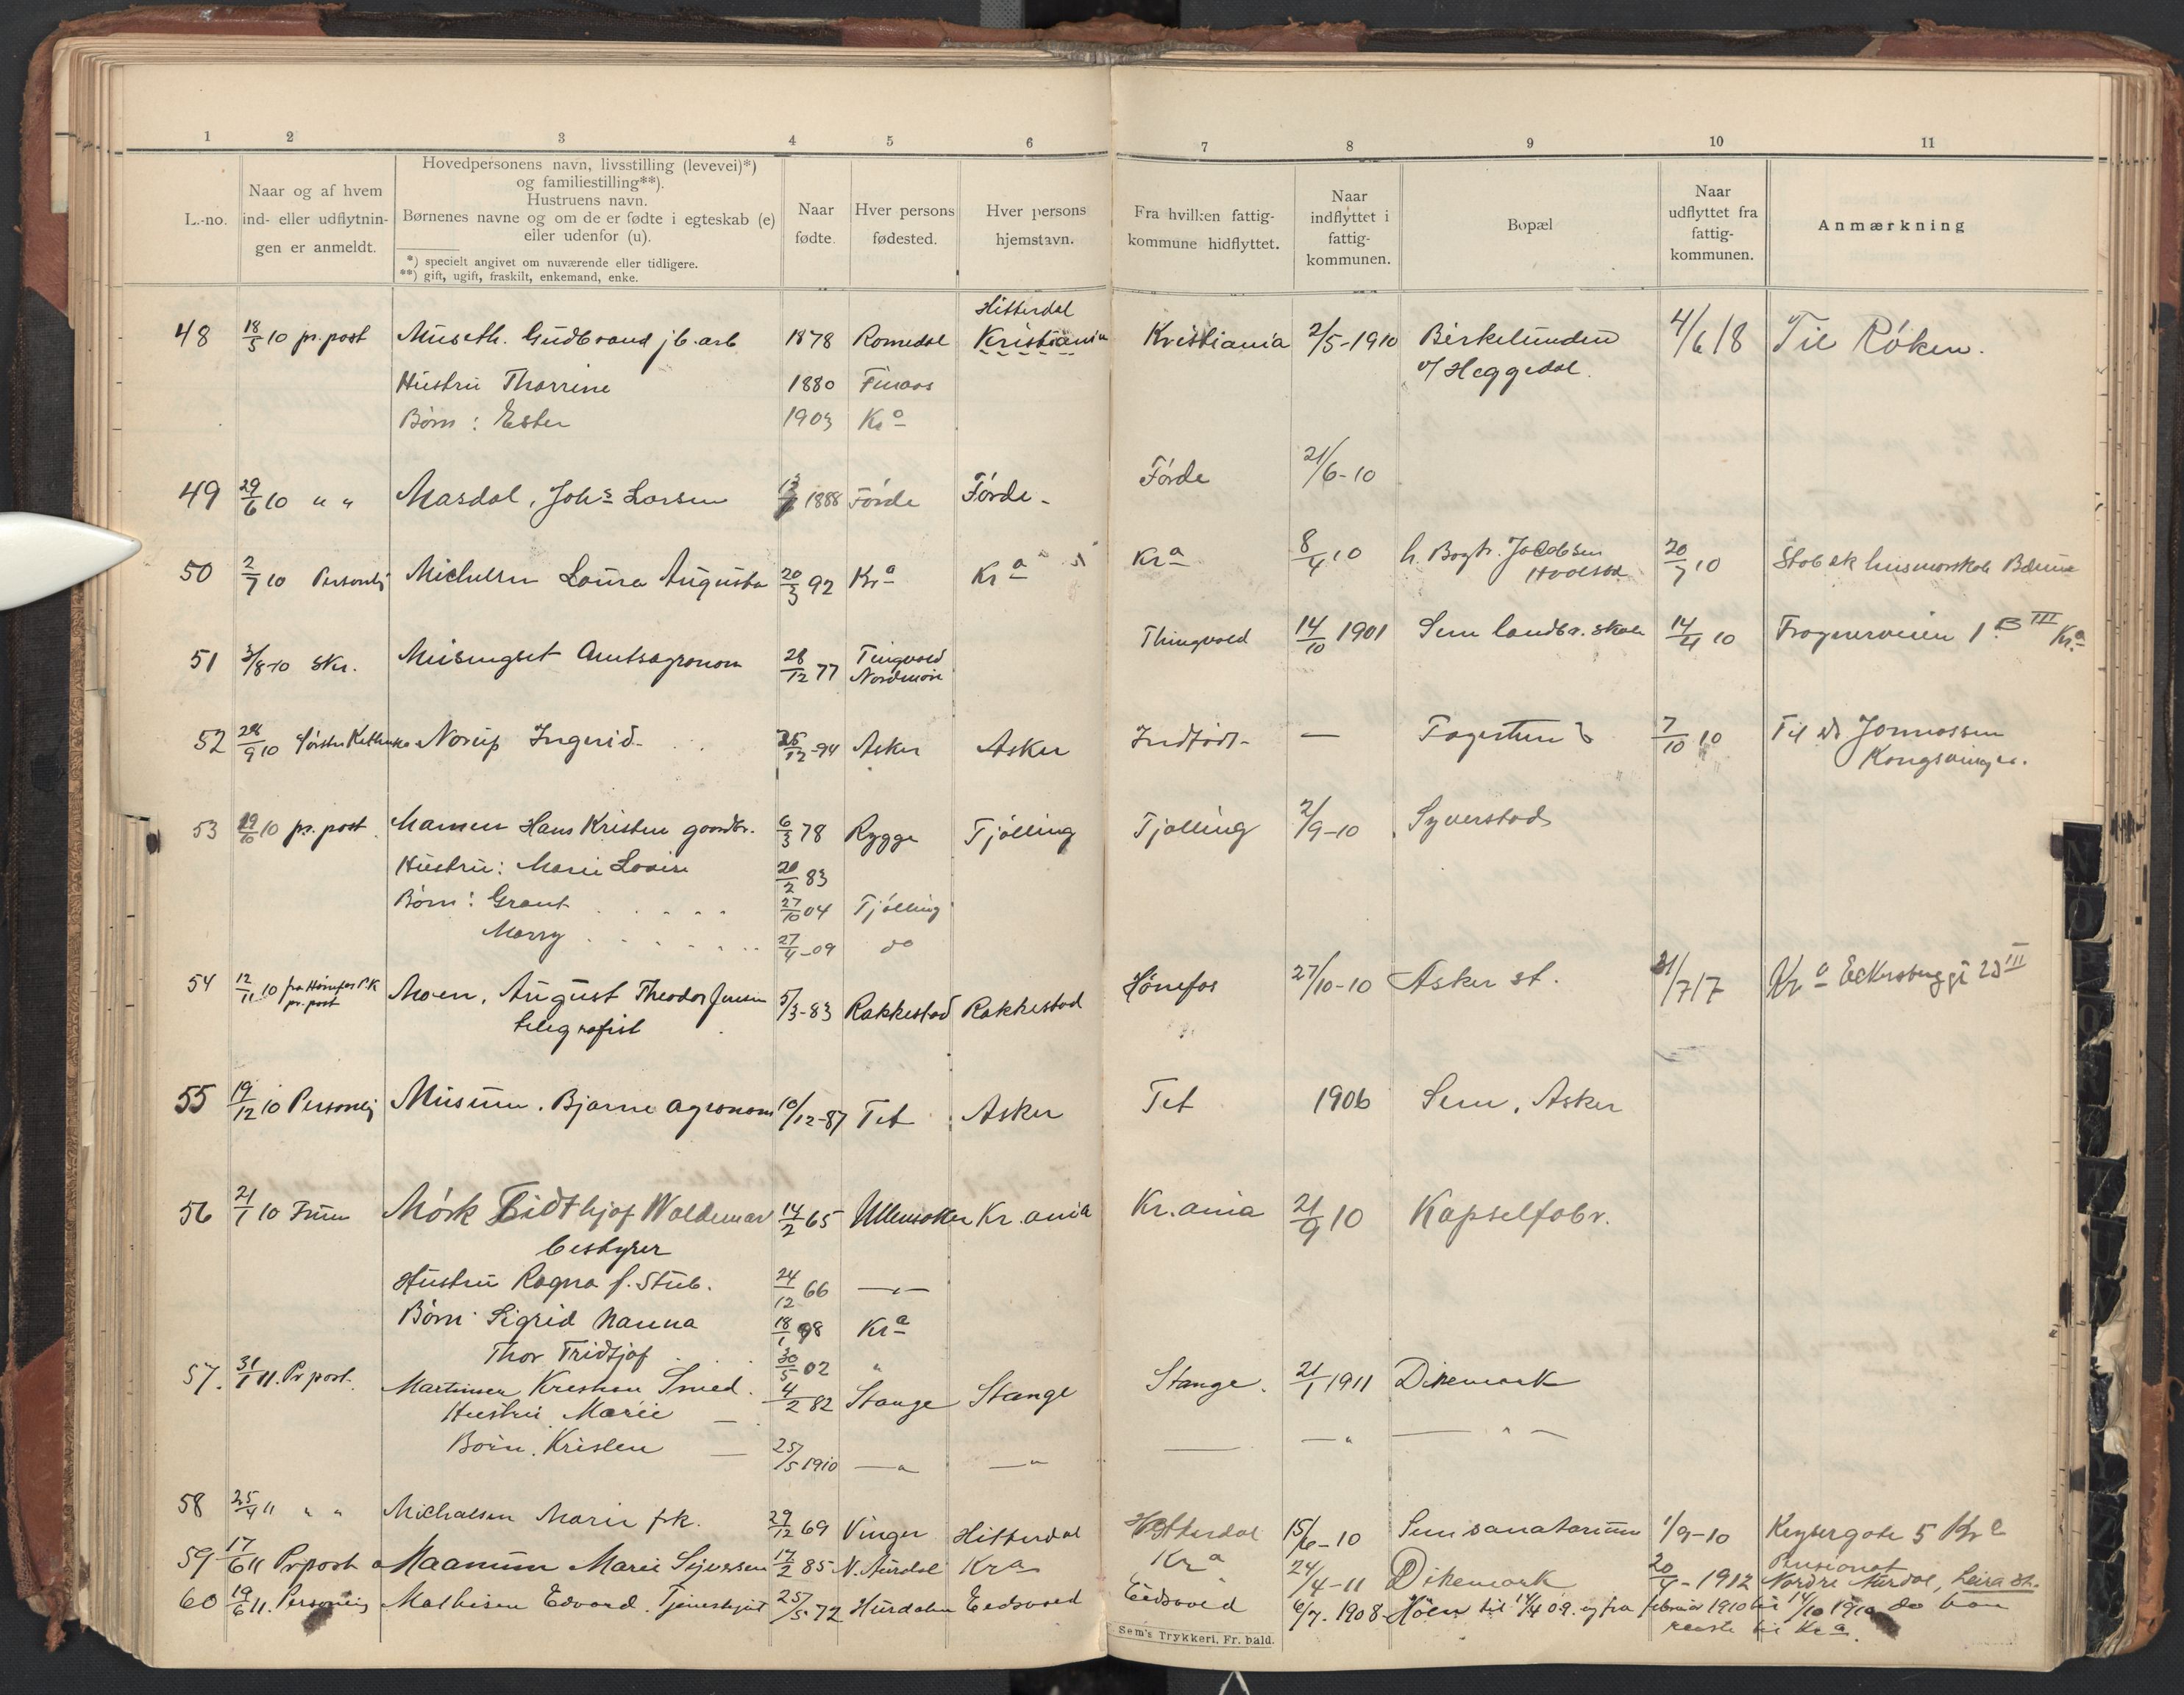 1 2 3 4 5 6 7 8 9 10 11
L.-no.
Naar og af hvem
ind- eller udflytnin-
gen er anmeldt.
Hovedpersonens navn, livsstilling (levevei)*)
og familiestilling**).
Hustruens navn.
Børnenes navne og om de er fødte i egteskab (e)
eller udenfor (u).
*) specielt angivet om nuværende eller tidligere.
**) gift, ugift, fraskilt, enkemand, enke.
Naar
fødte.
Hver persons
fødested.
Hver persons
hjemstavn.
Fra hvilken fattig-
kommune hidflyttet.
Naar
indflyttet i
fattig-
kommunen.
Bopæl
Naar
udflyttet fra
fattig-
kommunen.
Anmærkning
Hitterdal
48 18/5 10 pr. post Museth. Gudbrand jb. arb 1878 Romedal Kristiania Kristiania 2/5-1910 Birkelunden 4/6 18 Til Røken.
v/ Heggedal.
Hustru Thorrine 1880
Børn: Ester 1903 Kra
49 29/6 10 " " Masdal, Johs Larsen 1888 Førde Førde Førde 21/6-10
50 2/7 10 Personlig Michelsen Laura Augusta 20/3 92 Kra Kra Kra 8/4 10 h. Bagtr. Jacobsen 20/7 10 Stabæk husmorskole Bærum
Hvalstad
51 3/8-10 Skr. Musingset Amtsagronom 28/12 77 Tingvold Thingvold 14/10 1901 Sem landbr. skole 14/4 10 Frognerveien 1 B III Kra
Nordmøre
52 28/9 10 Norup Ingerid 26/12-94 Asker Asker Indfødt — 7/10 10 Til Jonnassen
Kongsvinger.
53 19/10 10 pr. post Mamen Hans Kristen gaardbr. 6/3 78 Rygge Tjølling Tjølling 2/9-10 Syverstad
Hustru: Marie Lovise 20/2 83
Børn: Grant 27/10 04 Tjølling
Marry 27/4-09 do
54 12/11 10 fra Hønefos P.K. Moen, August Theodor Jensen 5/3-83 Rakkestad Rakkestad Hønefos 27/10-10 Asker st. 31/7 17 Kra Eckersbergs gt 23 III
pr. post
telegrafist
55 19/12 10 Personlig Museum. Bjarne agronom 10/12-87 Tet Asker Tet 1906 Sem, Asker
56 21/1 10 Mørk Fridthjof Waldemar 14/2 65 Ullensaker Kr.ania Kr.ania 21/9 10 Kapselfabr.
bestyrer
Hustru Ragna f. Stub. 24/12 66 — " —
Børn Sigrid Nanna 18/1 98 Kra
Thor Fridtjof 30/5 02 "
57. 31/1 11. Pr post. Martinsen Kristian Smed. 4/2 82 Stange Stange Stange. 21/1 1911 Dikemark
Hustru Marie —
Børn. Kristen — 25/5 1910 — " — " — " — " —
58 25/4 11 " " Michalsen Marie frk. 29/12 69 Vinger Hitterdal Hitterdal 15/6-10 Sem sanatorium 1/9-10 Keysergate 5 Kra
Pensionat
59 17/6 11 Pr post Maanum Marie Syversen 17/2 85 N. Aurdal Kra Kra 24/4-11 Dikemark 20/4-1912 Nordre Aurdal, Leira st.
60 19/6 11. Personlig Mathisen Edvard. Tjenestgut 25/5 72 Hurdalen Eedsvold Eidsvold 6/7. 1908 Hølen til 14/4 09. og fra februar 1910 til 14/10 1910 da han
reiste til Kra.
Sem's Trykkeri, Fr. hald.